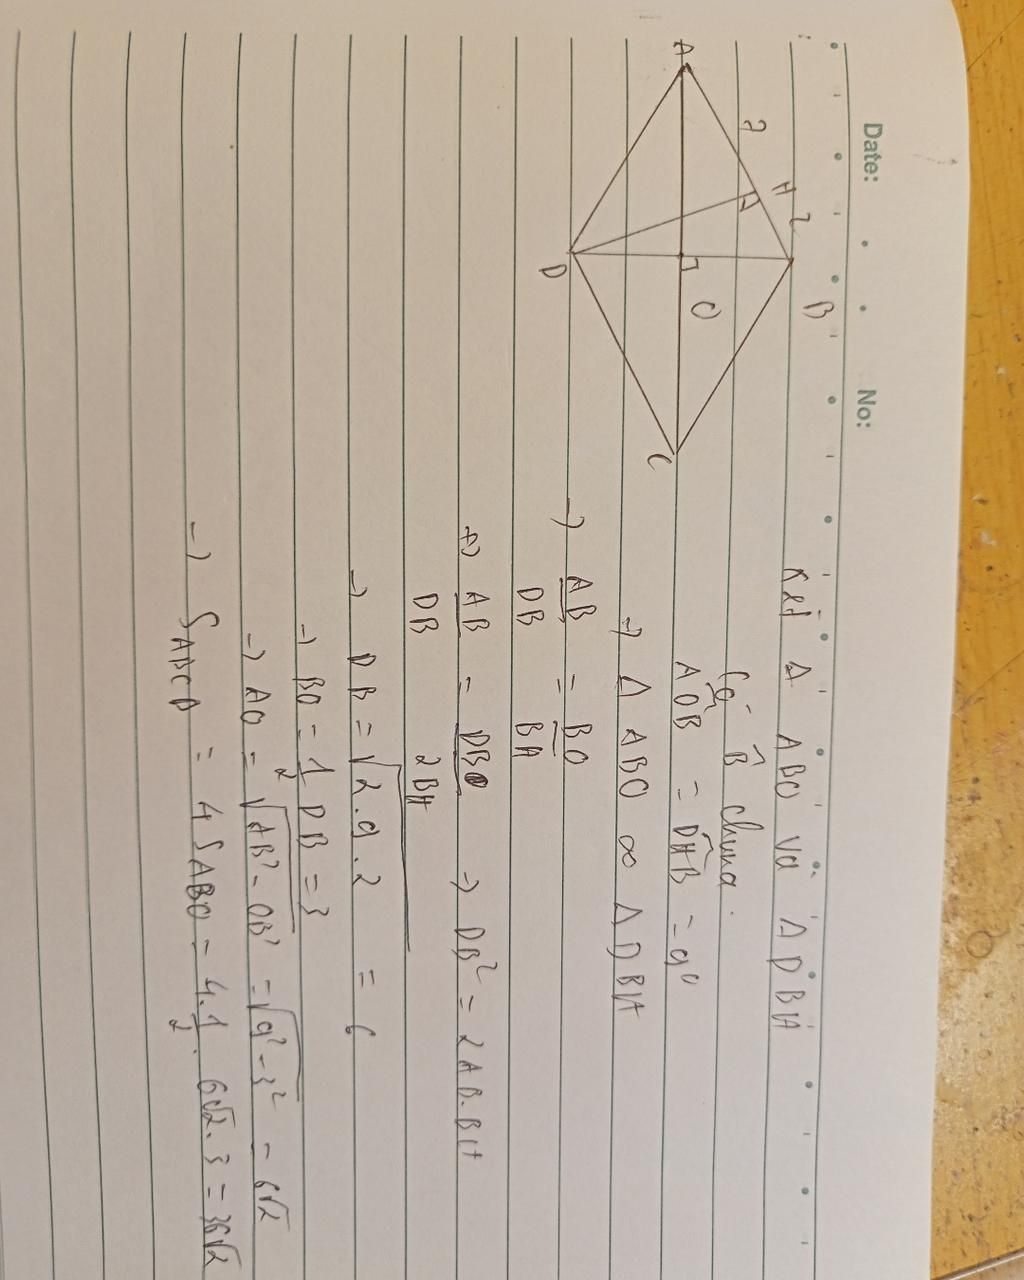 Date: No:
A
7
H
2
B
O
D
C
Xét Δ ABO và ΔDBH
Có B̂ chung.
AÔB = DĤB = 90
→ Δ ABO ∞ ΔDBH
→ AB/DB = BO/BH
⇔ AB/DB = DB/2BH → DB² = 2AB.BH
→ DB = √2.9.2 = 6
→ BO = 1/2 DB = 3
→ AO = √AB² - OB² = √9² - 3² = 6√2
→ SABCD = 4SABO = 4.1/2. 6√2.3 = 36√2